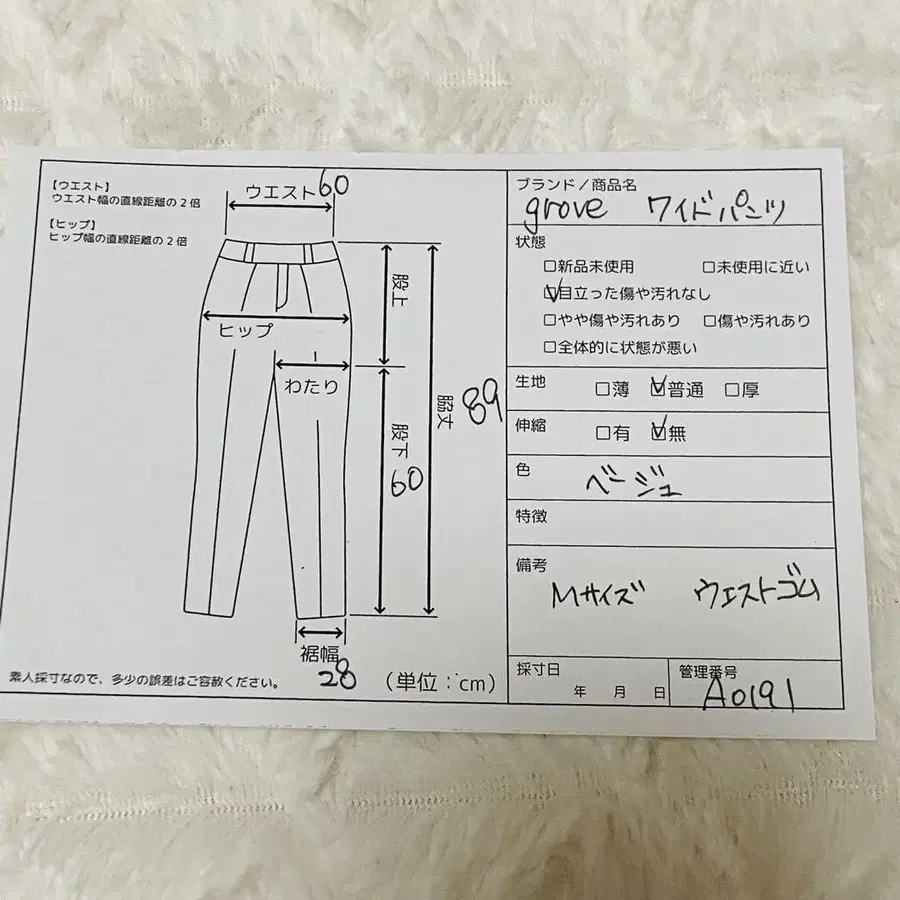 【ウエスト】
ウエスト幅の直線距離の2倍
【ヒップ】
ヒップ幅の直線距離の2倍
ウエスト60
ヒップ
わたり
股上
股下
60
脇丈
89
裾幅
28
(単位:cm)
素人採寸なので、多少の誤差はご容赦ください。
ブランド/商品名
grove ワイドパンツ
状態
□新品未使用 □未使用に近い
☑目立った傷や汚れなし
□やや傷や汚れあり □傷や汚れあり
□全体的に状態が悪い
生地 □薄 ☑普通 □厚
伸縮 □有 ☑無
色 ベージュ
特徴
備考
Mサイズ ウエストゴム
採寸日
年 月 日
管理番号
A0191